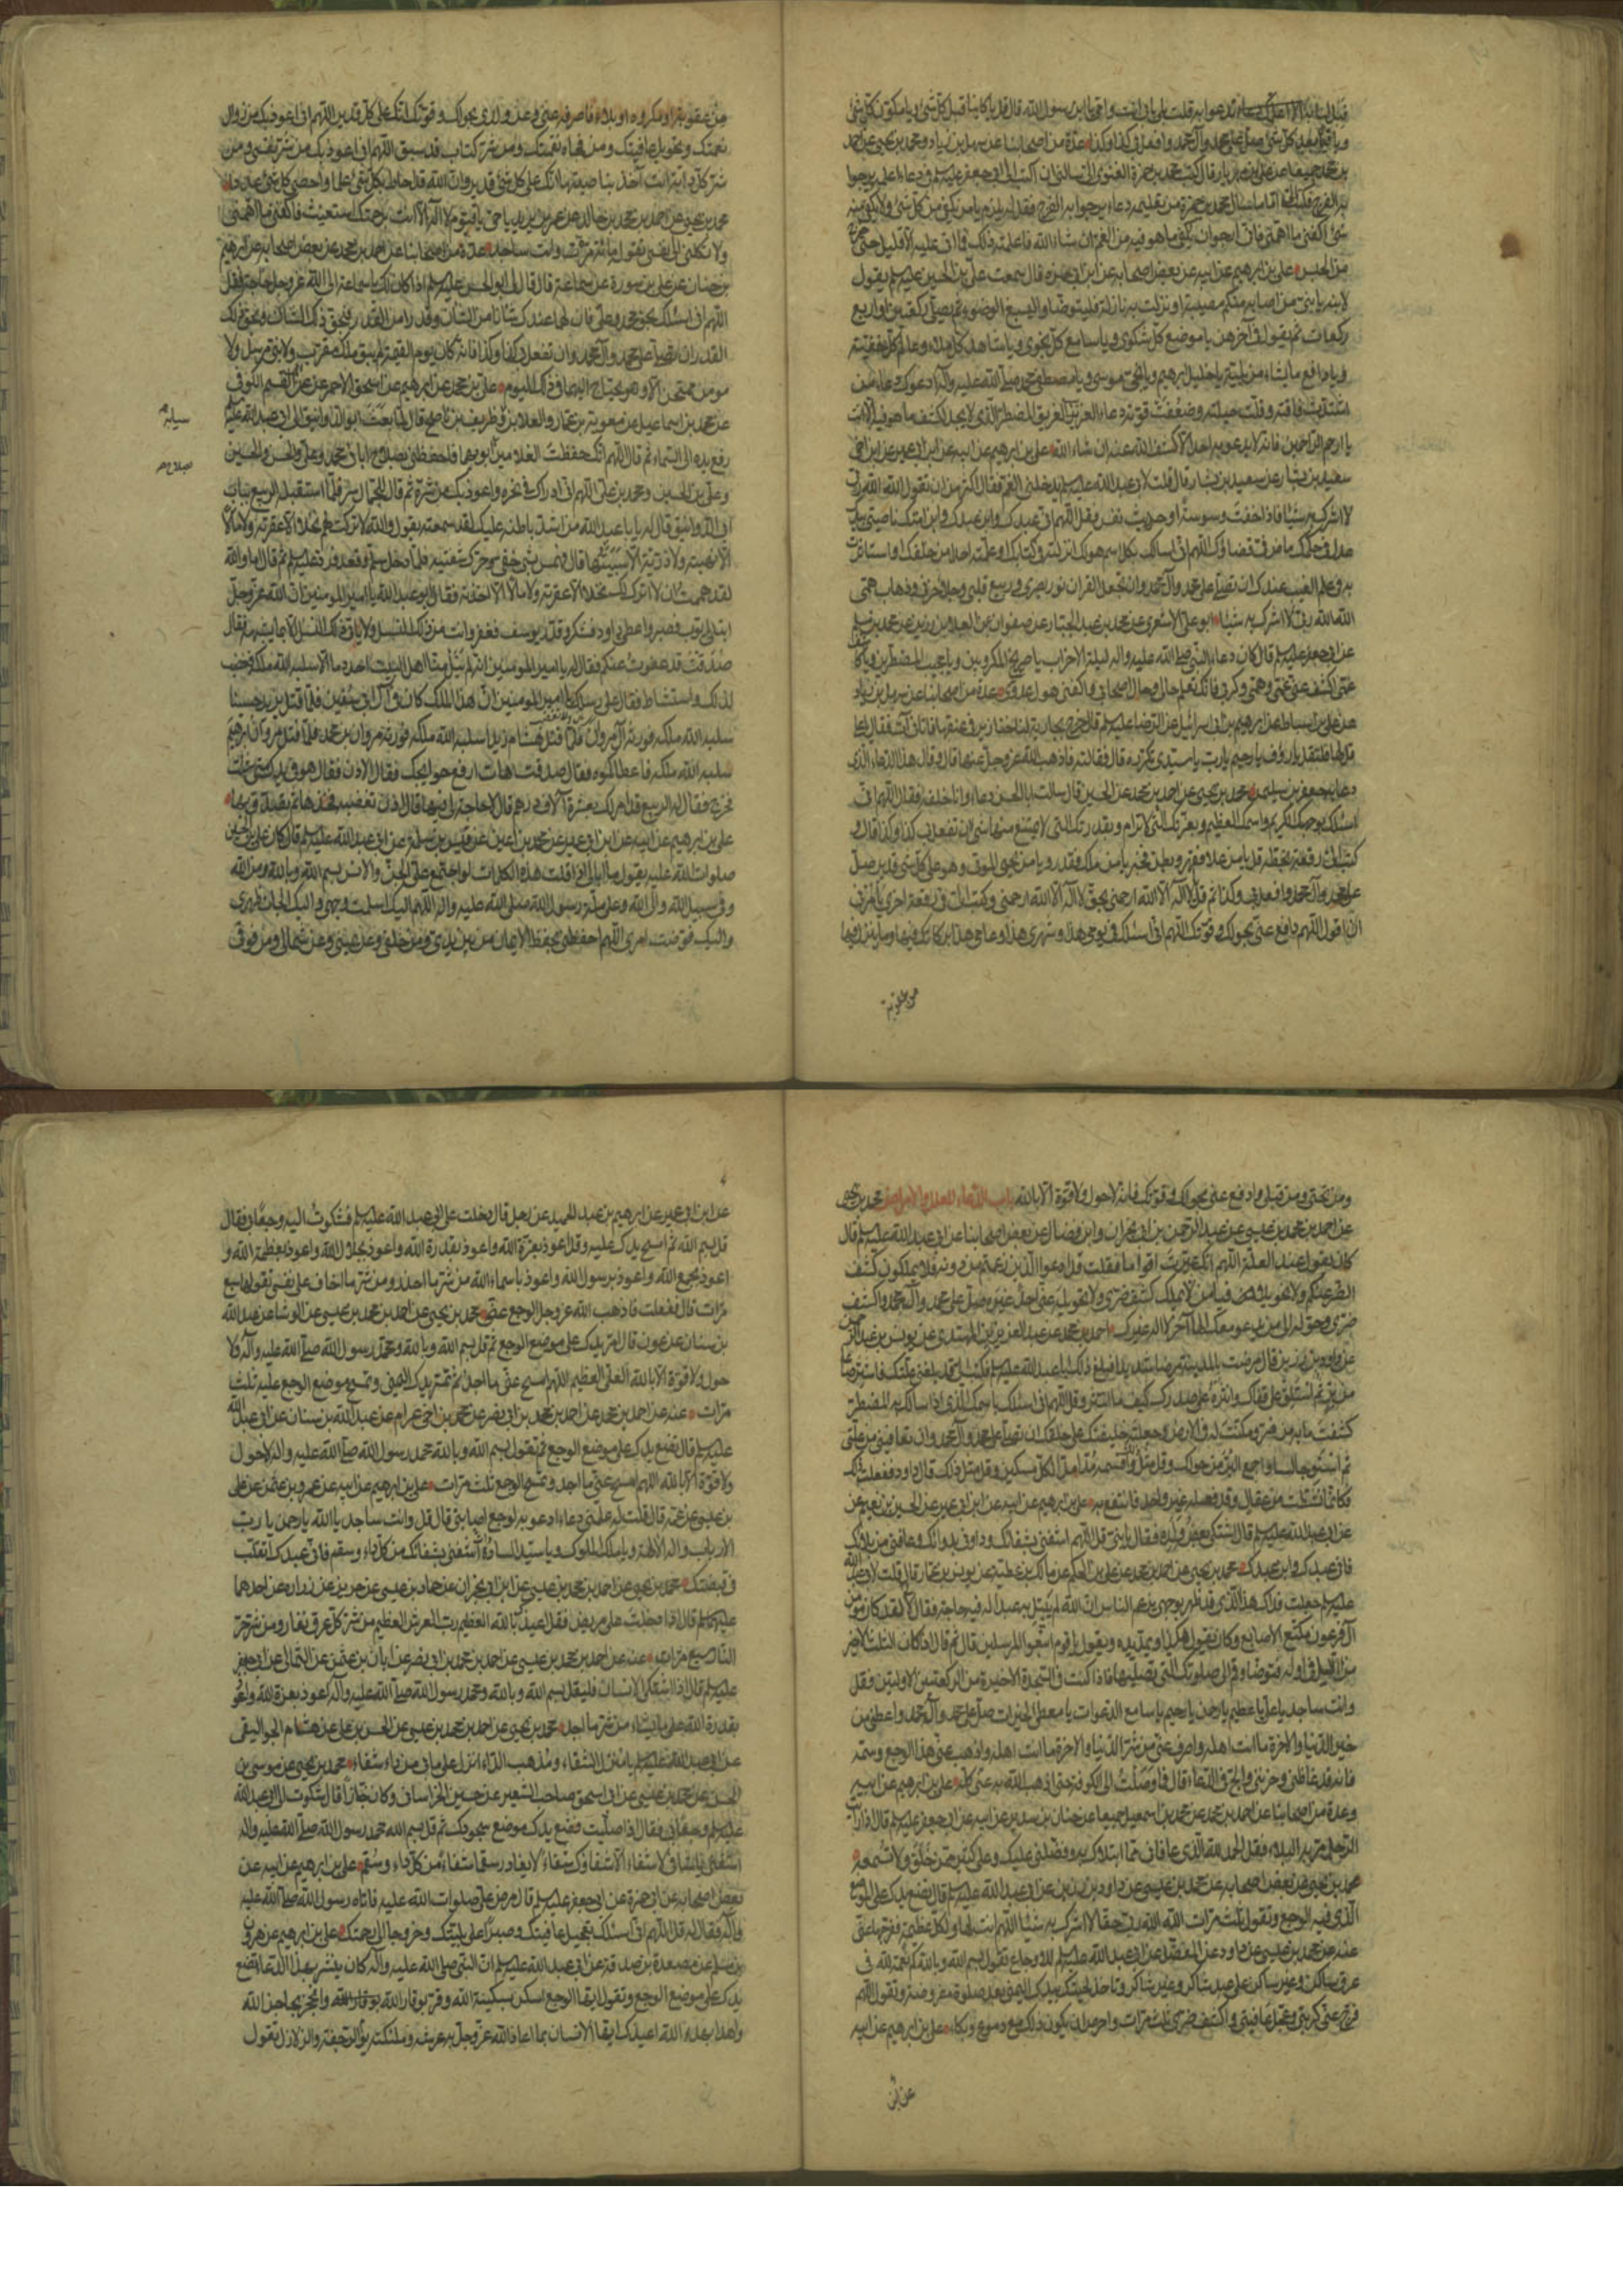 قبل ان ابدا الا اعلمك دعاء تدعوا به قلت بلى بابى انت وامى يا بن رسول الله قال قل يا كائنا قبل كل شئ ويا مكون كل شئ
ويا باقى بعد كل شئ صل على محمد وآل محمد وافعل بى كذا وكذا عدة من اصحابنا عن سهل بن زياد ومحمد بن يحيى عن احمد
بن محمد جميعا عن على بن مهزيار قال كتب محمد بن حمزة الغنوى الى يسالنى ان اكتب الى ابى جعفر عليه السلم فى دعاء اعلمه يرجوا
به الفرج فكتب الى اما ما سال محمد بن حمزة من تعليمه دعاء يرجوا به الفرج فقل له يلزم يا من يكفى من كل شئ ولا يكفى منه
شئ اكفنى ما اهمنى فانى ارجوا ان يكفى ما هو فيه من الغم ان شاء الله فاعلمته ذلك فما اتى عليه الا قليل حتى خرج
من الحبس على بن ابرهيم عن ابيه عن بعض اصحابه عن ابن ابى حمزه قال سمعت على بن الحسين عليه السلم يقول
لابنه يا بنى من اصابه منكم مصيبة او نزلت به نازلة فليتوضا وليسبغ الوضوء ثم يصلى ركعتين او اربع
ركعات ثم يقول فى آخرهن يا موضع كل شكوى ويا سامع كل نجوى ويا شاهد كل ملاء وعالم كل خفية
ويا دافع ما يشاء من بلية يا خليل ابرهيم ويا نجى موسى ويا مصطفى محمد صلى الله عليه وآله ادعوك دعاء من
اشتدت فاقته وقلت حيلته وضعفت قوته دعاء الغريب الغريق المضطر الذى لا يجد لكشف ما هو فيه الا انت
يا ارحم الراحمين فانه لا يدعو به احد الا كشف الله عنه ان شاء الله على بن ابرهيم عن ابيه عن ابن ابى عمير عن ابن اخى
سعيد بن يسار عن سعيد بن يسار قال قلت لابى عبد الله عليه السلم يدخلنى الغم فقال اكثر من ان تقول الله الله ربى
لا اشرك به شيئا فاذا خفت وسوسة او حديث نفس فقل اللهم انى عبدك وابن عبدك وابن امتك ناصيتى بيدك
عدل فى حكمك ماض فى قضاؤك اللهم انى اسالك بكل اسم هو لك انزلته فى كتابك او علمته احدا من خلقك او استاثرت
به فى علم الغيب عندك ان تصلى على محمد وآل محمد وان تجعل القران نور بصرى وربيع قلبى وجلاء حزنى وذهاب همى
الله الله ربى لا اشرك به شيئا ابو على الاشعرى عن محمد بن عبد الجبار عن صفوان عن العلاء بن رزين عن محمد بن مسلم
عن ابى جعفر عليه السلم قال كان دعاء النبى صلى الله عليه واله ليلة الاحزاب يا صريخ المكروبين ويا مجيب المضطرين ويا كاشف
غمى اكشف عنى غمى وهمى وكربى فانك تعلم حالى وحال اصحابى واكفنى هول عدوى عدة من اصحابنا عن سهل بن زياد
عن على بن اسباط عن ابرهيم بن ابى اسرائيل عن الرضا عليه السلم قال خرج بجارية لنا خنازير فى عنقها فاتانى آت فقال يا على
قل لها فلتقل يا رؤف يا رحيم يا رب يا سيدى تكرره قال فقالته فاذهب الله عز وجل عنها قال وقال هذا الدعاء الذى
دعا به جعفر بن سليمن محمد بن يحيى عن احمد بن محمد عن الحسين قال سالت ابا الحسن دعاء وانا خلفه فقال اللهم انى
اسئلك بوجهك الكريم واسمك العظيم وبعزتك التى لا ترام وبقدرتك التى لا يمتنع منها شئ ان تفعل بى كذا وكذا قال و
كتب الى رقعة بخطه قل يا من علا فقهر وبطن فخبر يا من ملك فقدر ويا من يحيى الموتى وهو على كل شئ قدير صل
على محمد وآل محمد وافعل بى كذا وكذا ثم قل يا لا اله الا الله ارحمنى بحق لا اله الا الله ارحمنى وكتب الى فى رقعة اخرى يامرنى
ان اقول اللهم ادفع عنى بحولك وقوتك اللهم انى اسئلك فى يومى هذا وشهرى هذا وعامى هذا بركاتك فيها وما ينزل فيها
من عقوبة
من عقوبة او مكروه او بلاء فاصرفه عنى وعن ولدى بحولك وقوتك انك على كل قدير اللهم انى اعوذ بك من زوال
نعمتك وتحويل عافيتك ومن فجاة نقمتك ومن شر كتاب قد سبق اللهم انى اعوذ بك من شر نفسى ومن
شر كل دابة انت آخذ بناصيتها انك على كل شئ قدير وان الله قد احاط بكل شئ علما واحصى كل شئ عددا
محمد بن يحيى عن احمد بن محمد بن خالد عن عمر بن يزيد يا حى يا قيوم لا اله الا انت برحمتك استغيث فاكفنى ما اهمنى
ولا تكلنى الى نفسى تقوله مائة مرة وانت ساجد عدة من اصحابنا عن احمد بن محمد عن بعض اصحابه عن ابرهيم
بن حنان عن على بن سورة عن سماعة قال قال لى ابو الحسن عليه السلم اذا كان لك يا سماعة الى الله عز وجل حاجة فقل
اللهم انى اسئلك بحق محمد وعلى فان لهما عندك شانا من الشان وقدرا من القدر فبحق ذلك الشان وبحق ذلك
القدر ان تصلى على محمد وآل محمد وان تفعل بى كذا وكذا فانه اذا كان يوم القيمة لم يبق ملك مقرب ولا نبى مرسل ولا
مومن ممتحن الا وهو يحتاج اليهما فى ذلك اليوم على بن محمد عن ابرهيم بن اسحق الاحمر عن ابى القسم الكوفى
عن محمد بن اسماعيل عن معوية بن عمار والعلاء بن سيابة وظريف بن ناصح قال لما بعث ابو الدوانيق الى ابى عبد الله عليه السلم
رفع يده الى السماء ثم قال اللهم انك حفظت الغلامين لابويهما فاحفظنى بصلاح ابائى محمد وعلى والحسن والحسين
وعلى بن الحسين ومحمد بن على اللهم انى ادراك فى نحره واعوذ بك من شره ثم قال للجمال سر فلما استقبله الربيع بباب
ابى الدوانيق قال له يا ابا عبد الله ما اشد باطنه عليك لقد سمعته يقول والله لا تركت لهم نخلا الا عقرته ولا مالا
الا نهبته ولا ذرية الا سبيتها قال فهمس بشئ خفى وحرك شفتيه فلما دخل سلم وقعد فرد عليه السلم ثم قال اما والله
لقد هممت ان لا اترك لك نخلا الا عقرته ولا مالا الا اخذته فقال ابو عبد الله يا امير المومنين ان الله عز وجل
ابتلى ايوب فصبر واعطى داود فشكر وقدر يوسف فغفر وانت من ذلك النسل ولا ياتى ذلك النسل الا بما يشبهه فقال
صدقت قد عفوت عنكم فقال له يا امير المومنين انه لم ينل منا اهل البيت احد دما الا سلبه الله ملكه فغضب
لذلك واستشاط فقال على رسلك يا امير المومنين ان هذا الملك كان فى آل ابى سفين فلما قتل يزيد حسينا
سلبه الله ملكه فورثه آل مروان فلما قتل هشام زيدا سلبه الله ملكه فورثه مروان بن محمد فلما قتل مروان ابرهيم
سلبه الله ملكه فاعطاكموه فقال صدقت هات ارفع حوائجك فقال الاذن فقال هو فى يدك متى شئت
فخرج فقال له الربيع قد امر لك بعشرة آلاف درهم قال لا حاجة لى فيها قال اذن تغضبه فخذها ثم تصدق بها
على بن ابرهيم عن ابيه عن ابن ابى عمير عن محمد بن اعين عن قيس بن سلمة عن ابى عبد الله عليه السلم قال كان على بن الحسين
صلوات الله عليه يقول ما ابالى اذا قلت هذه الكلمات لو اجتمع على الجن والانس بسم الله وبالله ومن الله
وفى سبيل الله والى الله وعلى ملة رسول الله صلى الله عليه واله اللهم اليك اسلمت وجهى واليك الجات ظهرى
واليك فوضت امرى اللهم احفظنى بحفظ الايمان من بين يدى ومن خلفى وعن يمينى وعن شمالى ومن فوقى
سيابه
بصلاح
ومن تحتى ومن قبلى وادفع عنى بحولك وقوتك فانه لا حول ولا قوة الا بالله باب الدعاء للعلل والامراض محمد بن يحيى
عن احمد بن محمد بن عيسى عن عبد الرحمن بن ابى نجران وابن فضال عن بعض اصحابنا عن ابى عبد الله عليه السلم قال
كان يقول عند العلة اللهم انك عيرت اقواما فقلت قل ادعوا الذين زعمتم من دونه فلا يملكون كشف
الضر عنكم ولا تحويلا فيا من لا يملك كشف ضرى ولا تحويله عنى احد غيره صل على محمد وآل محمد واكشف
ضرى وحوله الى من يدعو معك الها آخر لا اله غيرك احمد بن محمد عن عبد العزيز بن المهتدى عن يونس بن عبد الرحمن
عن داود بن زربى قال مرضت بالمدينة مرضا شديدا فبلغ ذلك ابا عبد الله عليه السلم فكتب الى قد بلغنى علتك فاشتر صاعا
من بر ثم استلق على قفاك وانثره على صدرك كيف ما انتثر وقل اللهم انى اسئلك باسمك الذى اذا سالك به المضطر
كشفت ما به من ضر ومكنت له فى الارض وجعلته خليفتك على خلقك ان تصلى على محمد وآل محمد وان تعافينى من علتى
ثم استو جالسا واجمع البر من حولك وقل مثل ذلك واقسمه مدا مدا لكل مسكين وقل مثل ذلك قال داود ففعلت ذلك
فكانما نشطت من عقال وقد فعله غير واحد فانتفع به على بن ابرهيم عن ابيه عن ابن ابى عمير عن الحسين بن نعيم عن
عن ابى عبد الله عليه السلم قال اشتكى بعض ولده فقال يا بنى قل اللهم اشفنى بشفائك وداونى بدوائك وعافنى من بلائك
فانى عبدك وابن عبدك محمد بن يحيى عن احمد بن محمد عن على بن الحكم عن مالك بن عطية عن يونس بن عمار قال قلت لابى عبد الله
عليه السلم جعلت فداك هذا الذى قد ظهر بوجهى يزعم الناس ان الله لم يبتل به عبدا له فيه حاجة فقال لا لقد كان مومن
آل فرعون مكنع الاصابع وكان يقول هكذا ويمد يده ويقول يا قوم اتبعوا المرسلين قال ثم قال اذا كان الثلث الاخير
من الليل فى اوله فتوضا وقم الى صلوتك التى تصليها فاذا كنت فى السجدة الاخيرة من الركعتين الاوليين فقل
وانت ساجد يا على يا عظيم يا رحمن يا رحيم يا سامع الدعوات يا معطى الخيرات صل على محمد وآل محمد واعطنى من
خير الدنيا والاخرة ما انت اهله واصرف عنى من شر الدنيا والاخرة ما انت اهله واذهب عنى هذا الوجع وسمه
فانه قد غاظنى وحزننى والح فى الدعاء قال فما وصلت الى الكوفة حتى اذهب الله به عنى كله على بن ابرهيم عن ابيه
وعدة من اصحابنا عن احمد بن محمد عن محمد بن اسمعيل جميعا عن حنان بن سدير عن ابيه عن ابى جعفر عليه السلم قال اذا رايت
الرجل مر به البلاء فقل الحمد لله الذى عافانى مما ابتلاك به وفضلنى عليك وعلى كثير ممن خلق ولا تسمعه
محمد بن يحيى عن بعض اصحابه عن محمد بن عيسى عن داود بن رزين عن ابى عبد الله عليه السلم قال تضع يدك على الموضع
الذى فيه الوجع وتقول ثلث مرات الله الله ربى حقا لا اشرك به شيئا اللهم انت لها ولكل عظيمة ففرجها عنى
عنه عن محمد بن عيسى عن داود عن المفضل عن ابى عبد الله عليه السلم للاوجاع تقول بسم الله وبالله كم نعمة لله فى
عرق ساكن وغير ساكن على عبد شاكر وغير شاكر وتاخذ لحيتك بيدك اليمنى بعد صلوة مفروضة وتقول اللهم
فرج عنى كربتى وعجل عافيتى واكشف ضرى ثلث مرات واحرص ان يكون ذلك مع دموع وبكاء على بن ابرهيم عن ابيه
عن ابن
عن ابن ابى عمير عن ابرهيم بن عبد الحميد عن رجل قال دخلت على ابى عبد الله عليه السلم فشكوت اليه وجعا بى فقال
قل بسم الله ثم امسح يدك عليه وقل اعوذ بعزة الله واعوذ بقدرة الله واعوذ بجلال الله واعوذ بعظمة الله و
اعوذ بجمع الله واعوذ برسول الله واعوذ باسماء الله من شر ما احذر ومن شر ما اخاف على نفسى تقولها سبع
مرات قال ففعلت فاذهب الله عز وجل الوجع عنى محمد بن يحيى عن احمد بن محمد بن عيسى عن الوشا عن عبد الله
بن سنان عن عون قال امر يدك على موضع الوجع ثم قل بسم الله وبالله ومحمد رسول الله صلى الله عليه وآله ولا
حول ولا قوة الا بالله العلى العظيم اللهم امسح عنى ما اجد ثم تمر يدك اليمنى وتمسح موضع الوجع عليه ثلث
مرات عنه عن احمد بن محمد عن احمد بن محمد بن ابى نصر عن محمد بن اخى عرام عن عبد الله بن سنان عن ابى عبد الله
عليه السلم قال تضع يدك على موضع الوجع ثم تقول بسم الله وبالله محمد رسول الله صلى الله عليه واله ولا حول
ولا قوة الا بالله اللهم امسح عنى ما اجد وتمسح الوجع ثلث مرات على بن ابرهيم عن ابيه عن عمرو بن عثمن عن على
بن عيسى عن عمه قال قلت له علمنى دعاء ادعو به لوجع اصابنى قال قل وانت ساجد يا الله يا رحمن يا رب
الارباب واله الآلهة ويا ملك الملوك ويا سيد السادة اشفنى بشفائك من كل داء وسقم فانى عبدك اتقلب
فى قبضتك محمد بن يحيى عن احمد بن محمد بن عيسى عن ابن ابى نجران عن حماد بن عيسى عن حريز عن زراره عن احدهما
عليهما السلم قال اذا دخلت على مريض فقل اعيذك بالله العظيم رب العرش العظيم من شر كل عرق نفار ومن شر حر
النار سبع مرات عنه عن احمد بن محمد بن عيسى عن احمد بن محمد بن ابى نصر عن ابان بن عثمن عن الثمالى عن ابى جعفر
عليه السلم قال اذا اشتكى الانسان فليقل بسم الله وبالله ومحمد رسول الله صلى الله عليه وآله اعوذ بعزة الله واعوذ
بقدرة الله على ما يشاء من شر ما اجد محمد بن يحيى عن احمد بن محمد بن عيسى عن الحسن بن على عن هشام الجواليقى
عن ابى عبد الله عليه السلم يا منزل الشفاء ومذهب الداء انزل على ما بى من داء شفاء محمد بن يحيى عن موسى بن
الحسن عن محمد بن عيسى عن ابى اسحق صاحب الشعير عن حسين الخراسانى وكان خبازا قال شكوت الى ابى عبد الله
عليه السلم وجعا بى فقال اذا صليت فضع يدك موضع سجودك ثم قل بسم الله محمد رسول الله صلى الله عليه واله
اشفنى يا شافى لا شفاء الا شفاؤك شفاء لا يغادر سقما شفاء من كل داء وسقم على بن ابرهيم عن ابيه عن
بعض اصحابه عن ابى حمزة عن ابى جعفر عليه السلم قال مرض على صلوات الله عليه فاتاه رسول الله صلى الله عليه
وآله فقال له قل اللهم انى اسئلك تعجيل عافيتك وصبرا على بليتك وخروجا الى رحمتك على بن ابرهيم عن هرون
بن مسلم عن مسعدة بن صدقة عن ابى عبد الله عليه السلم ان النبى صلى الله عليه واله كان ينشر بهذا الدعا تضع
يدك على موضع الوجع وتقول ايها الوجع اسكن بسكينة الله وقر بوقار الله وانحجز بحاجز الله
واهدا بهدء الله اعيذك ايها الانسان بما اعاذ الله عز وجل به عرشه وملئكته يوم الرجفة والزلازل تقول